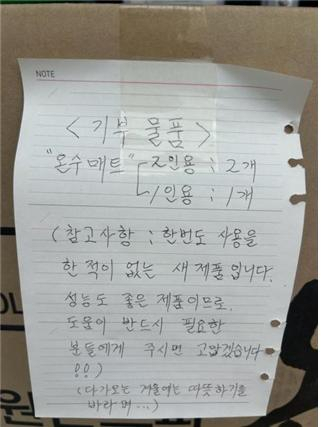 NOTE
<기부 물품>
"온수매트" 2인용 : 2개
1인용 : 1개
(참고사항 : 한번도 사용을
한 적이 없는 새 제품입니다.
성능도 좋은 제품이므로,
도움이 반드시 필요한
분들에게 주시면 고맙겠습니다
!!)
(다가오는 겨울에는 따뜻하기를
바라며...)